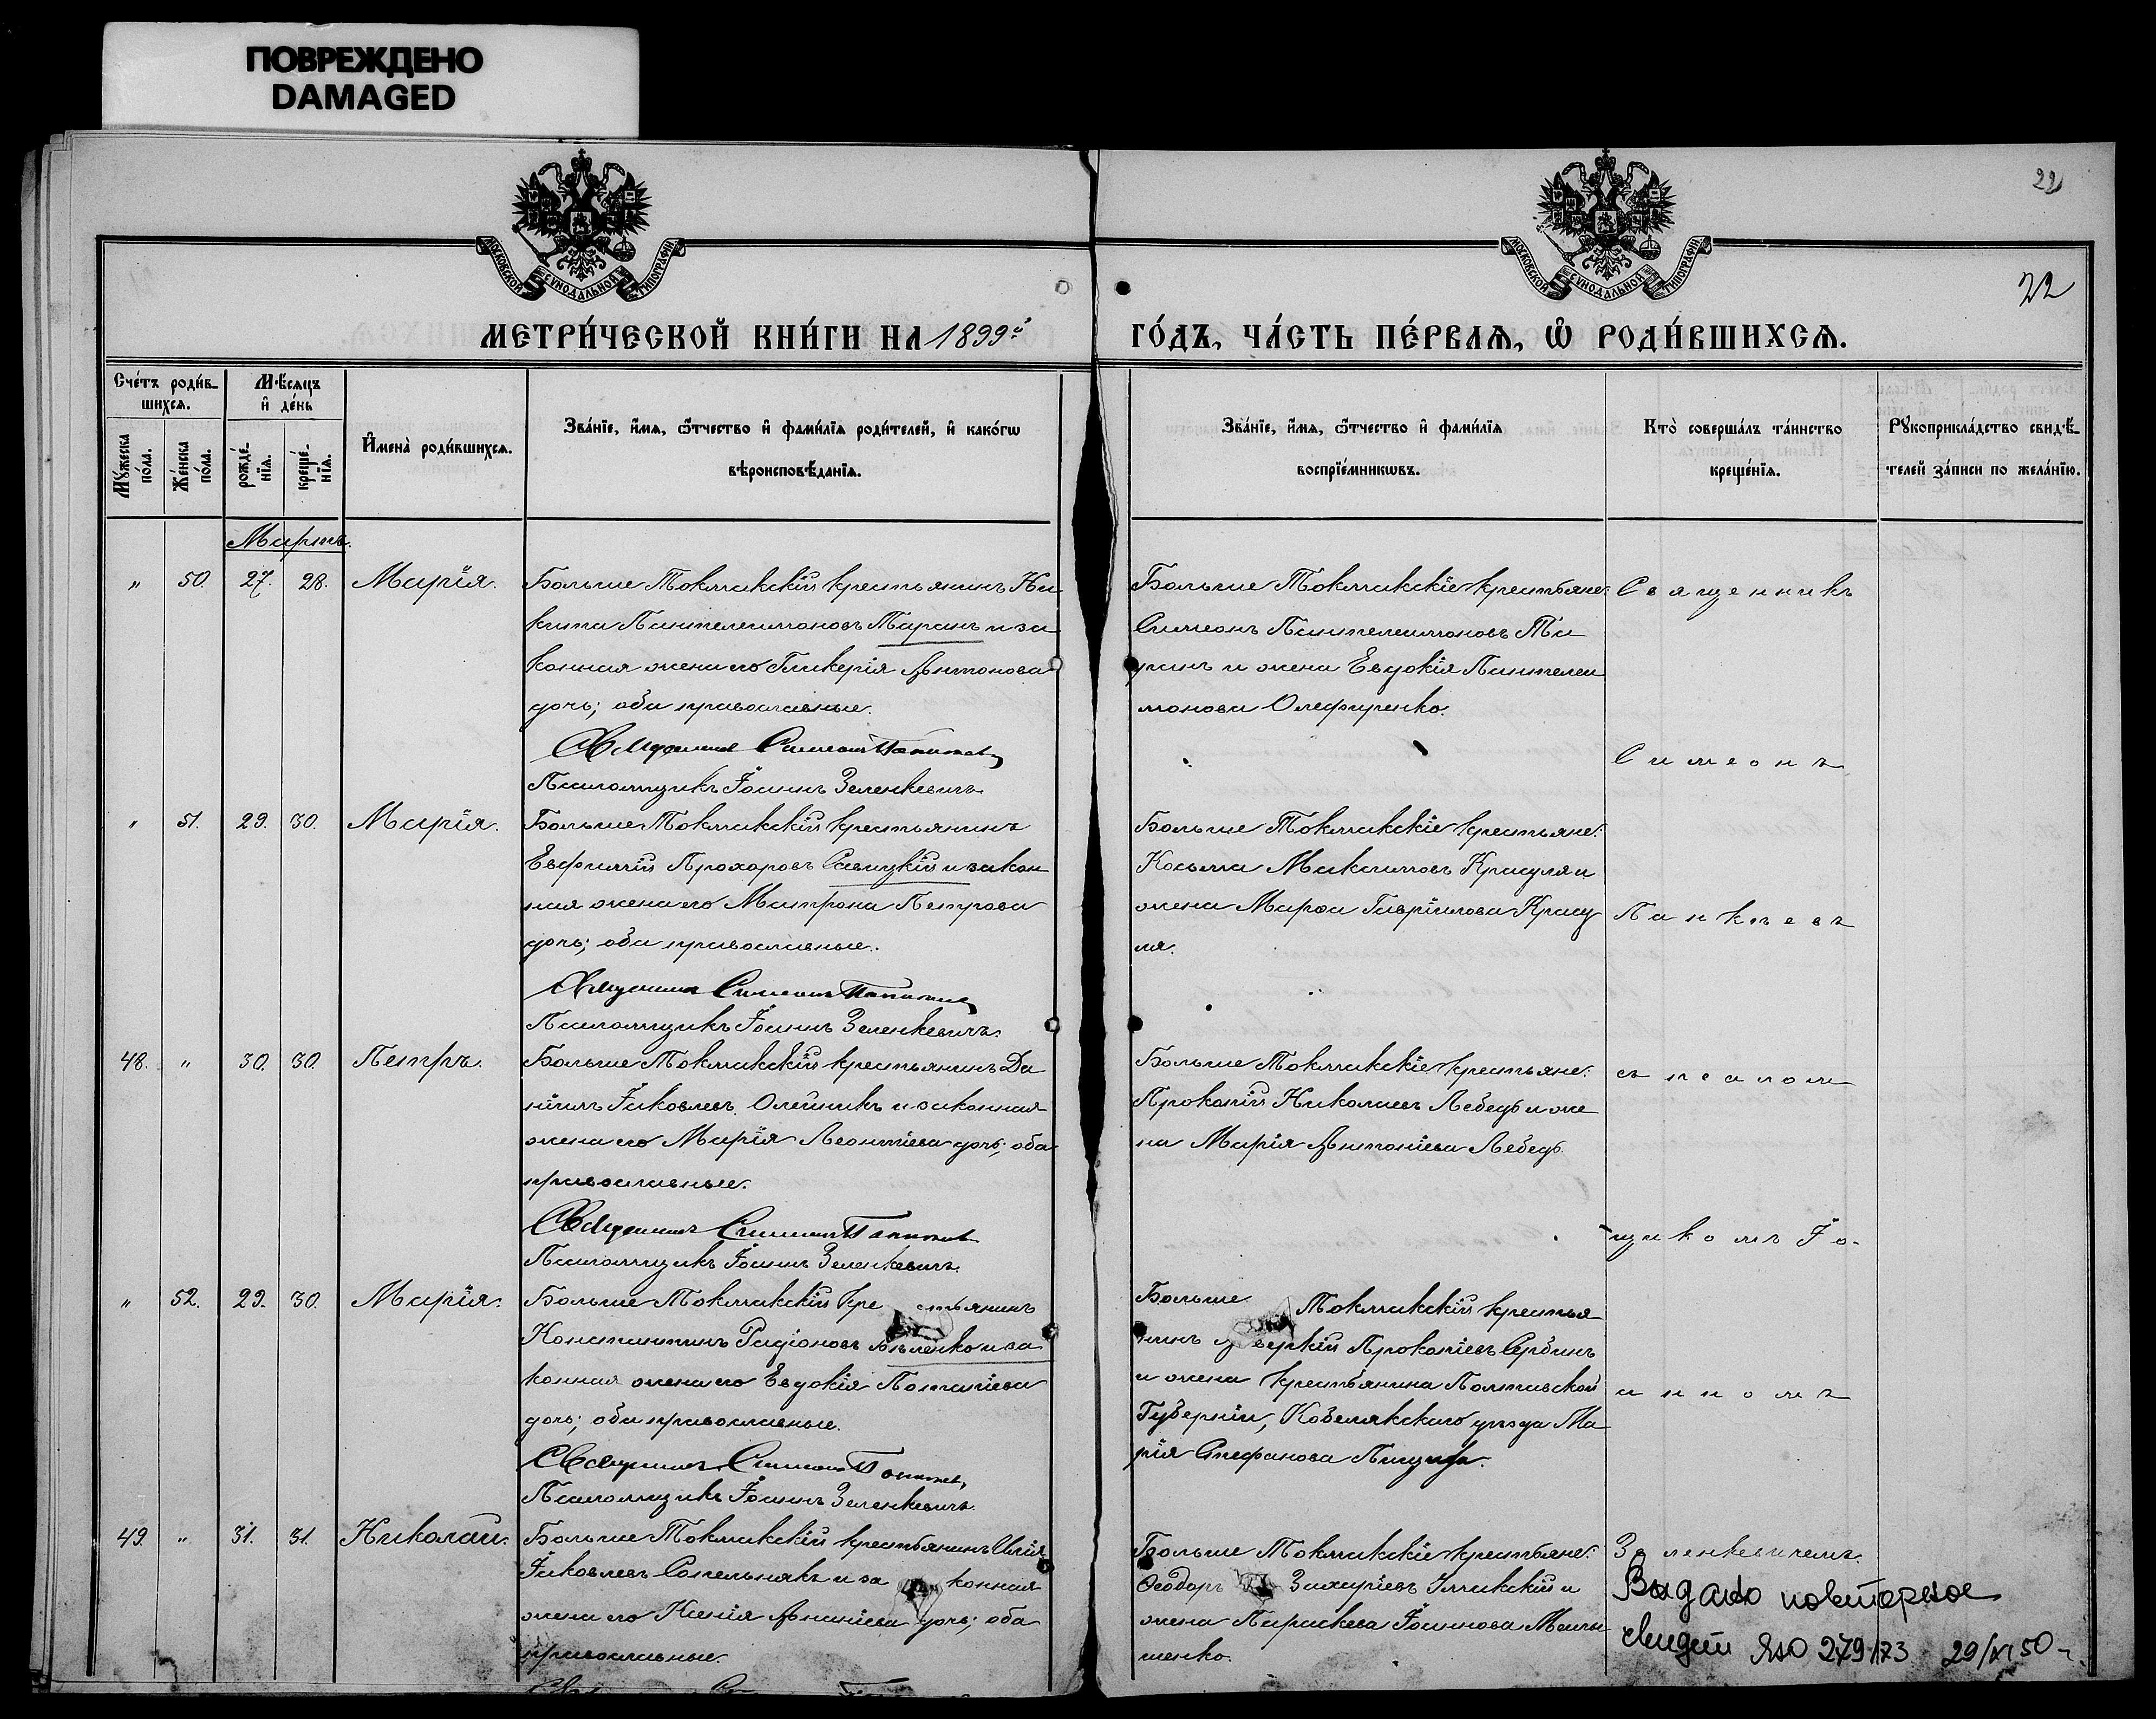 ПОВРЕЖДЕНО
DAMAGED
22
22
МОСКОВСКОЙ СѴНОДАЛЬНОЙ ТИПОГРАФІИ
МОСКОВСКОЙ СѴНОДАЛЬНОЙ ТИПОГРАФІИ
МЕТРИ́ЧЕСКОЙ КНИ́ГИ НА 1899й ГО́ДЪ, ЧА́СТЬ ПЕ́РВАѦ, Ѽ РОДИ́ВШИХСѦ.
Сче́тъ роди́в-
шихсѧ.
Мꙋ́жеска по́ла.
Же́нска по́ла.
Мѣ́сѧцъ
и҆ де́нь
рожде́нїѧ.
креще́нїѧ.
И҆мена̀ роди́вшихсѧ.
Зва́нїе, и҆́мѧ, ѻ҆́тчество и҆ фами́лїѧ роди́телей, и҆ како́гѡ
вѣроисповѣ́данїѧ.
Зва́нїе, и҆́мѧ, ѻ҆́тчество и҆ фами́лїѧ
воспрїе́мникѡвъ.
Кто̀ соверша́лъ та́инство
креще́нїѧ.
Рꙋкоприкла́дство свидѣ́-
телей за́писи по жела́нїю.
Мартъ.
" 50. 27. 28. Марія.
Больше Токмакскій крестьянинъ Ни
кита Пантелеимоновъ Таранъ и за
конная жена его Гликерія Антонова
дочь; оба православные.
Священникъ Симеонъ
Псаломщикъ Іоаннъ Зеленкевичъ
Больше Токмакскіе крестьяне:
Симеонъ Пантелеимоновъ Та
ранъ и жена Евдокія Пантелеи
монова Олефиренко.
Священникъ
Симеонъ
" 51. 29. 30. Марія.
Больше Токмакскій крестьянинъ
Евфимій Прохоровъ Савицкій и закон
ная жена его Матрона Петрова
дочь; оба православные.
Священникъ Симеонъ
Псаломщикъ Іоаннъ Зеленкевичъ.
Больше Токмакскіе крестьяне:
Косьма Максимовъ Красуля и
жена Марѳа Гавріилова Красу
ля.
48. " 30. 30. Петръ.
Больше Токмакскій крестьянинъ Да
ніилъ Іаковлевъ Олейникъ и законная
жена его Марія Леонтіева дочь; оба
православные.
Священникъ Симеонъ
Псаломщикъ Іоаннъ Зеленкевичъ.
Больше Токмакскіе крестьяне:
Прокопій Николаевъ Лебедь и же
на Марія Антоніева Лебедь.
съ псалом
щикомъ Іо-
" 52. 29. 30. Марія.
Больше Токмакскій крестьянинъ
Константинъ Радіоновъ Бѣленко и за
конная жена его Евдокія Потапіева
дочь; оба православные.
Священникъ Симеонъ
Псаломщикъ Іоаннъ Зеленкевичъ.
Больше Токмакскій крестья
нинъ Аверкій Прокопіевъ Сербинъ
и жена крестьянина Полтавской
Губерніи, Кобелякскаго уѣзда Ма
рія Стефанова
анномъ
49. " 31. 31. Николай.
Больше Токмакскій крестьянинъ Илія
Іаковлевъ Сопельнякъ и законная
жена его Ксенія Ананіева дочь; оба
православные.
Больше Токмакскіе крестьяне:
Ѳеодоръ Захаріевъ и
жена Параскева Іоаннова
шенко.
Зеленкевичемъ.
Видано повторное
свидет ЯЮ 279173 29/XI 50